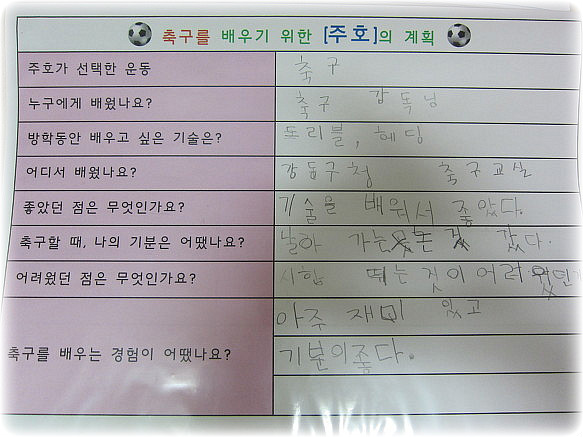 축구를 배우기 위한 [주호]의 계획
주호가 선택한 운동 축구
누구에게 배웠나요? 축구 감독님
방학동안 배우고 싶은 기술은? 드리블, 헤딩
어디서 배웠나요? 강동구청 축구교실
좋았던 점은 무엇인가요? 기술을 배워서 좋았다.
축구할 때, 나의 기분은 어땠나요? 날아 가는 것 같았다.
어려웠던 점은 무엇인가요? 시합 뛰는 것이 어려웠던
아주 재미 있고
축구를 배우는 경험이 어땠나요? 기분이좋다.